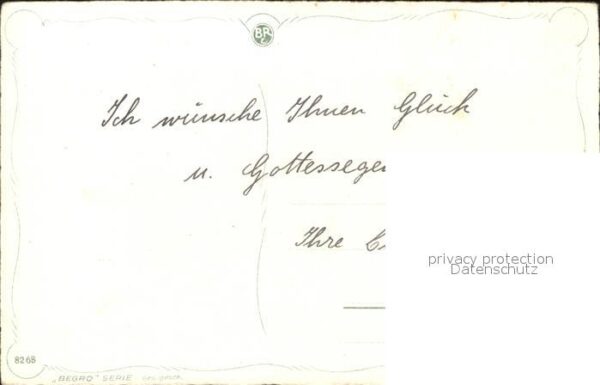 BR
Ich wünsche Ihnen Glück
u. Gottessegen
Ihre
privacy protection
Datenschutz
8268
„BEGRO" SERIE